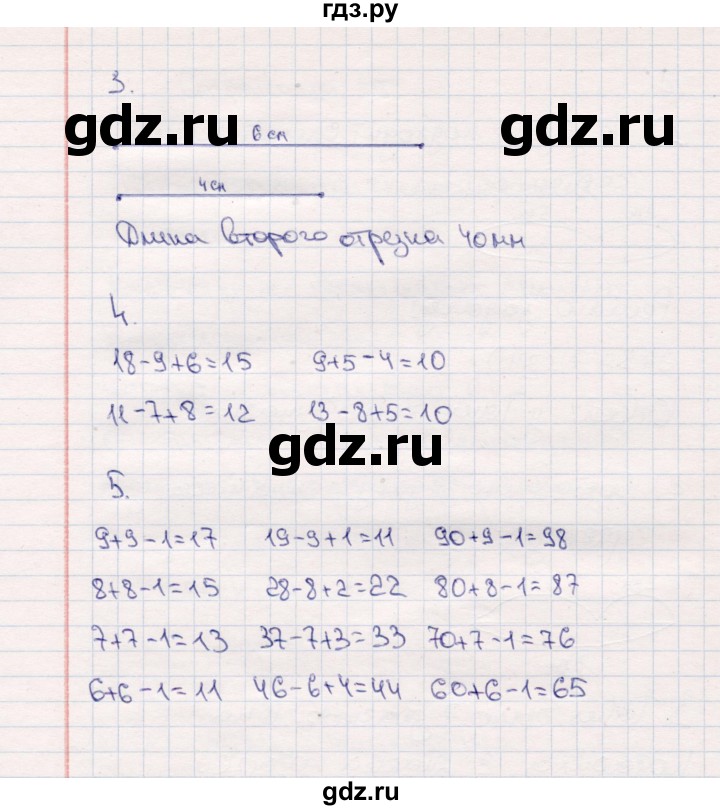 гдз.ру
3.
gdz.ru gdz.ru
6 см
4 см
Длина второго отрезка 40 мм
4.
18-9+6=15 9+5-4=10
11-7+8=12 13-8+5=10
gdz.ru
5.
9+9-1=17 19-9+1=11 90+9-1=98
8+8-1=15 28-8+2=22 80+8-1=87
7+7-1=13 37-7+3=33 70+7-1=76
6+6-1=11 46-6+4=44 60+6-1=65
gdz.ru gdz.ru
гдз.ру